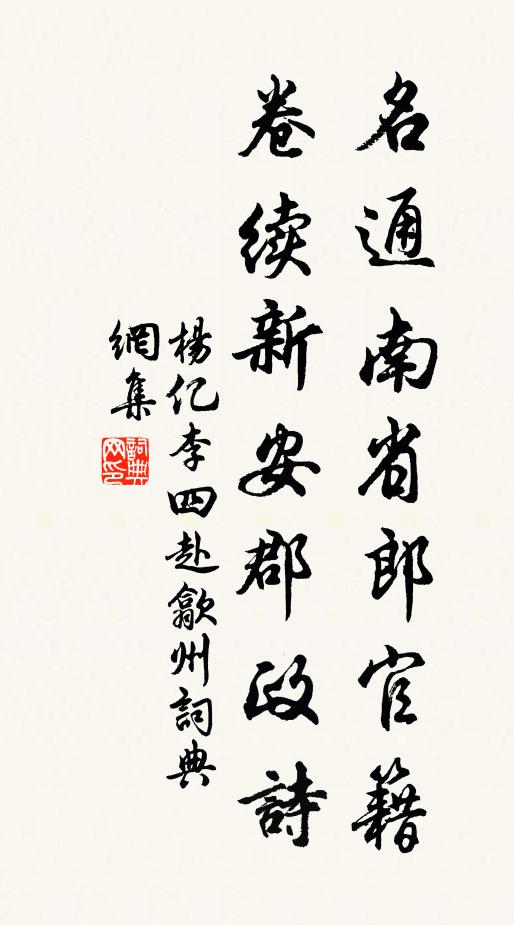 名通南省郎官籍
卷续新安郡政詩
楊亿李四赴歙州詞典
網集
詞典
网印